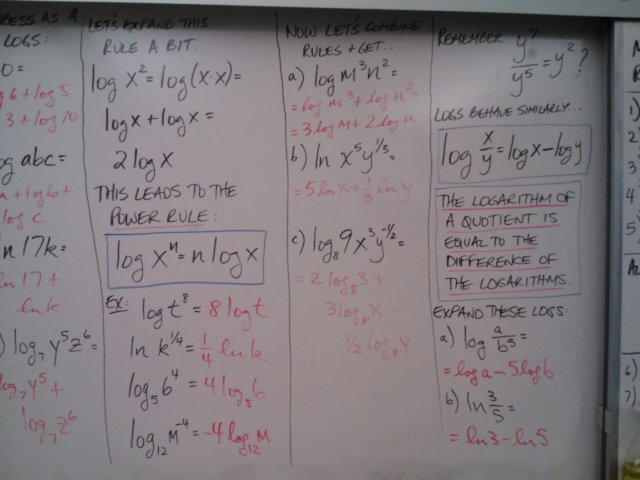 RESS AS A
LOGS:
0=
g 6 + log 5
3 + log 10
og abc =
a + log b +
log c
n 17k =
ln 17 +
ln k
) log₇ y⁵z⁶ =
log₇ y⁵ +
log₇ z⁶
LET'S EXPAND THIS
RULE A BIT.
log x² = log (x·x) =
log x + log x =
2 log x
THIS LEADS TO THE
POWER RULE:
log xⁿ = n log x
EX: log t⁸ = 8 log t
ln k^1/4 = 1/4 ln k
log₅ 6⁴ = 4 log₅ 6
log₁₂ M⁻⁴ = -4 log₁₂ M
NOW LET'S COMBINE
RULES + GET...
a) log m³n² =
= log m³ + log n² =
= 3 log m + 2 log n
b) ln x⁵y^1/3 =
= 5 ln x + 1/3 ln y
c) log₈ 9x³y^-1/2 =
= 2 log₈ 3 +
3 log₈ x -
1/2 log₈ y
REMEMBER y⁷/y⁵ = y² ?
LOGS BEHAVE SIMILARLY...
log x/y = log x - log y
THE LOGARITHM OF
A QUOTIENT IS
EQUAL TO THE
DIFFERENCE OF
THE LOGARITHMS.
EXPAND THESE LOGS:
a) log a/b⁵ =
= log a - 5 log b
b) ln 3/5 =
= ln 3 - ln 5
1)
2
3
4
5
6)
7)